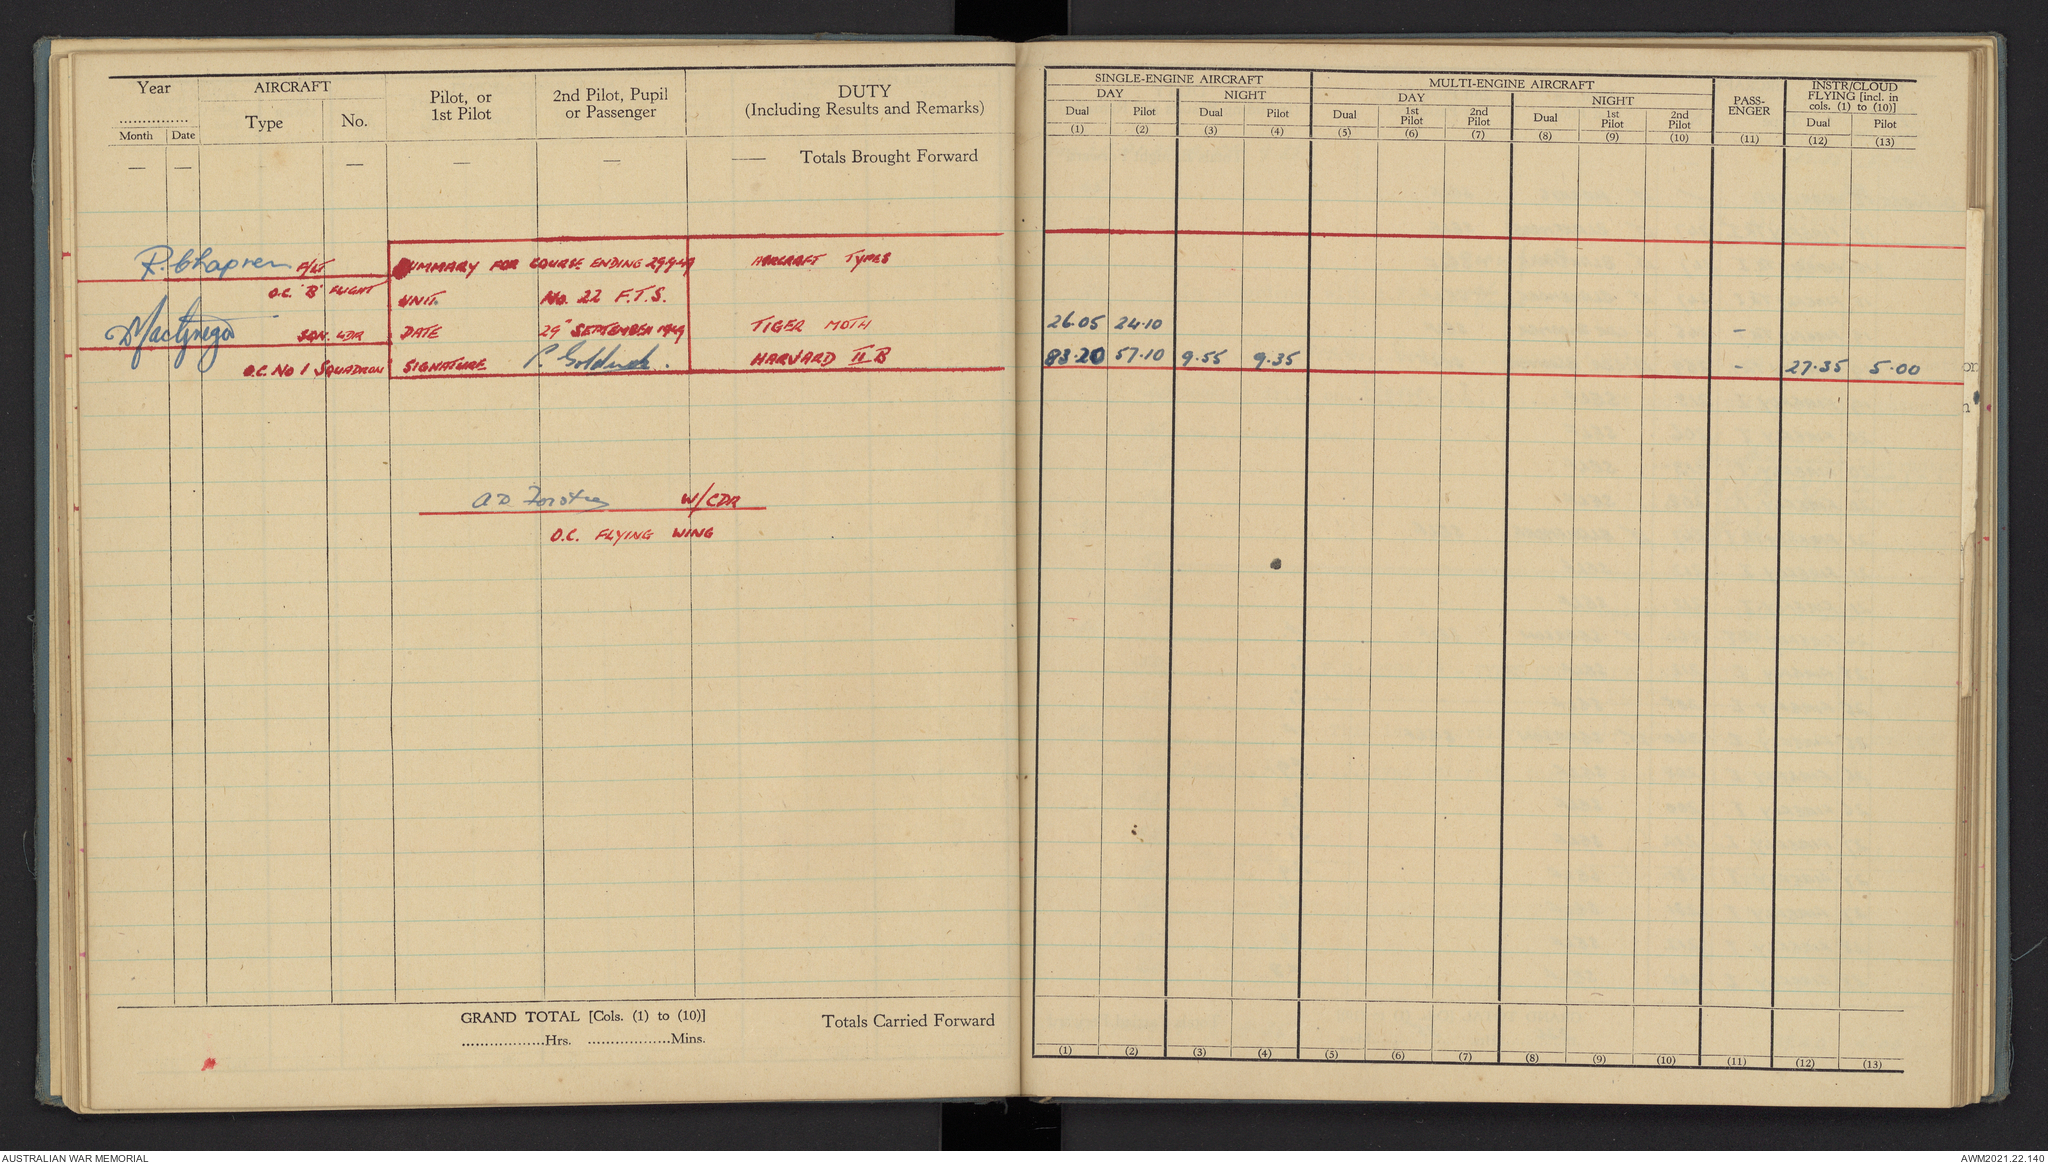 Year
AIRCRAFT
Pilot, or
1st Pilot
2nd Pilot, Pupil
or Passenger
DUTY
(Including Results and Remarks)
Type
No.
Month Date
— — — — — —— Totals Brought Forward
SINGLE-ENGINE AIRCRAFT
MULTI-ENGINE AIRCRAFT
PASS-
ENGER
INSTR/CLOUD
FLYING [incl. in
cols. (1) to (10)]
DAY NIGHT DAY NIGHT
Dual Pilot Dual Pilot Dual 1st Pilot 2nd Pilot Dual 1st Pilot 2nd Pilot Dual Pilot
(1) (2) (3) (4) (5) (6) (7) (8) (9) (10) (11) (12) (13)
F/LT SUMMARY FOR COURSE ENDING 29.9.49 AIRCRAFT TYPES
O.C. 'B' FLIGHT UNIT. No. 22 F.T.S.
D MacGregor SQN. LDR DATE 29" SEPTEMBER 1949 TIGER MOTH 26.05 24.10 –
O.C. No 1 SQUADRON SIGNATURE HARVARD II B 83.20 57.10 9.55 9.35 – 27.35 5.00
A D W/CDR
O.C. FLYING WING
GRAND TOTAL [Cols. (1) to (10)]
Totals Carried Forward
..................Hrs. ..................Mins.
(1) (2) (3) (4) (5) (6) (7) (8) (9) (10) (11) (12) (13)
AUSTRALIAN WAR MEMORIAL
AWM2021.22.140